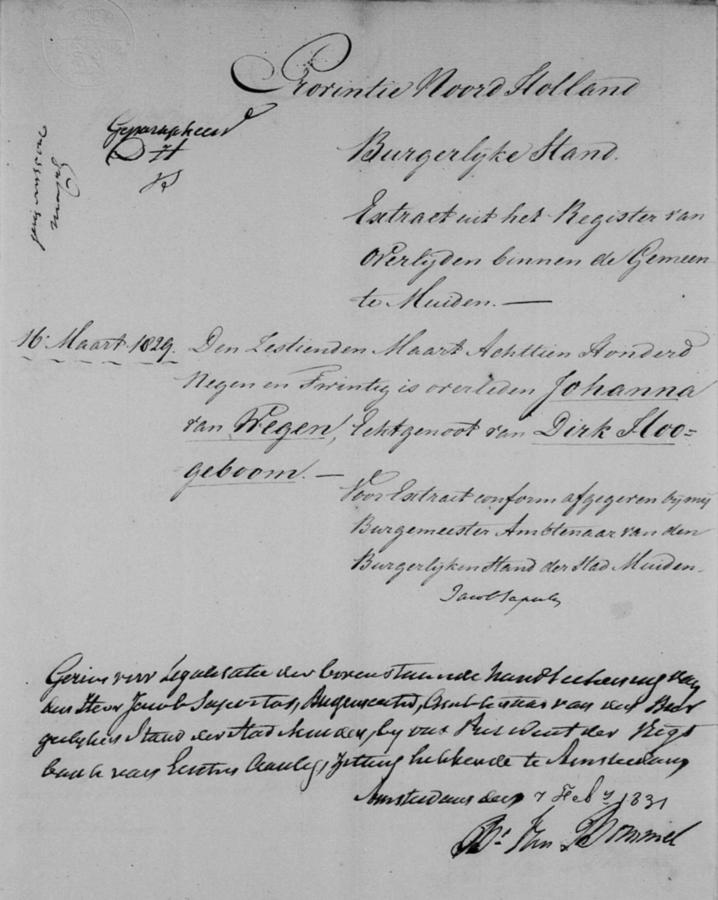 Provintie Noord Holland
Geparapheerd
Burgerlyke Stand.
Extract uit het Register van
Overlyden binnen de Gemeen
te Muiden. —
16 Maart 1829. Den Zestienden Maart Achttien Honderd
Negen en Twintig is overleden Johanna
van Wegen, Echtgenoot van Dirk Hoo=
geboom. —
Voor Extract conform afgegeven by mij
Burgemeester Ambtenaar van den
Burgerlyken Stand der Stad Muiden.
Jacob
voor Legalisatie der bovenstaande handteekening van
den Heer Jacob Burgemeester, Ambtenaar van den Bur
gerlyken Stand der Stad Muiden, by ons President der Regt
bank van Eersten Aanleg, Zitting hebbende te Amsterdam
Amsterdam den 7 Feb 1831
Van Bommel